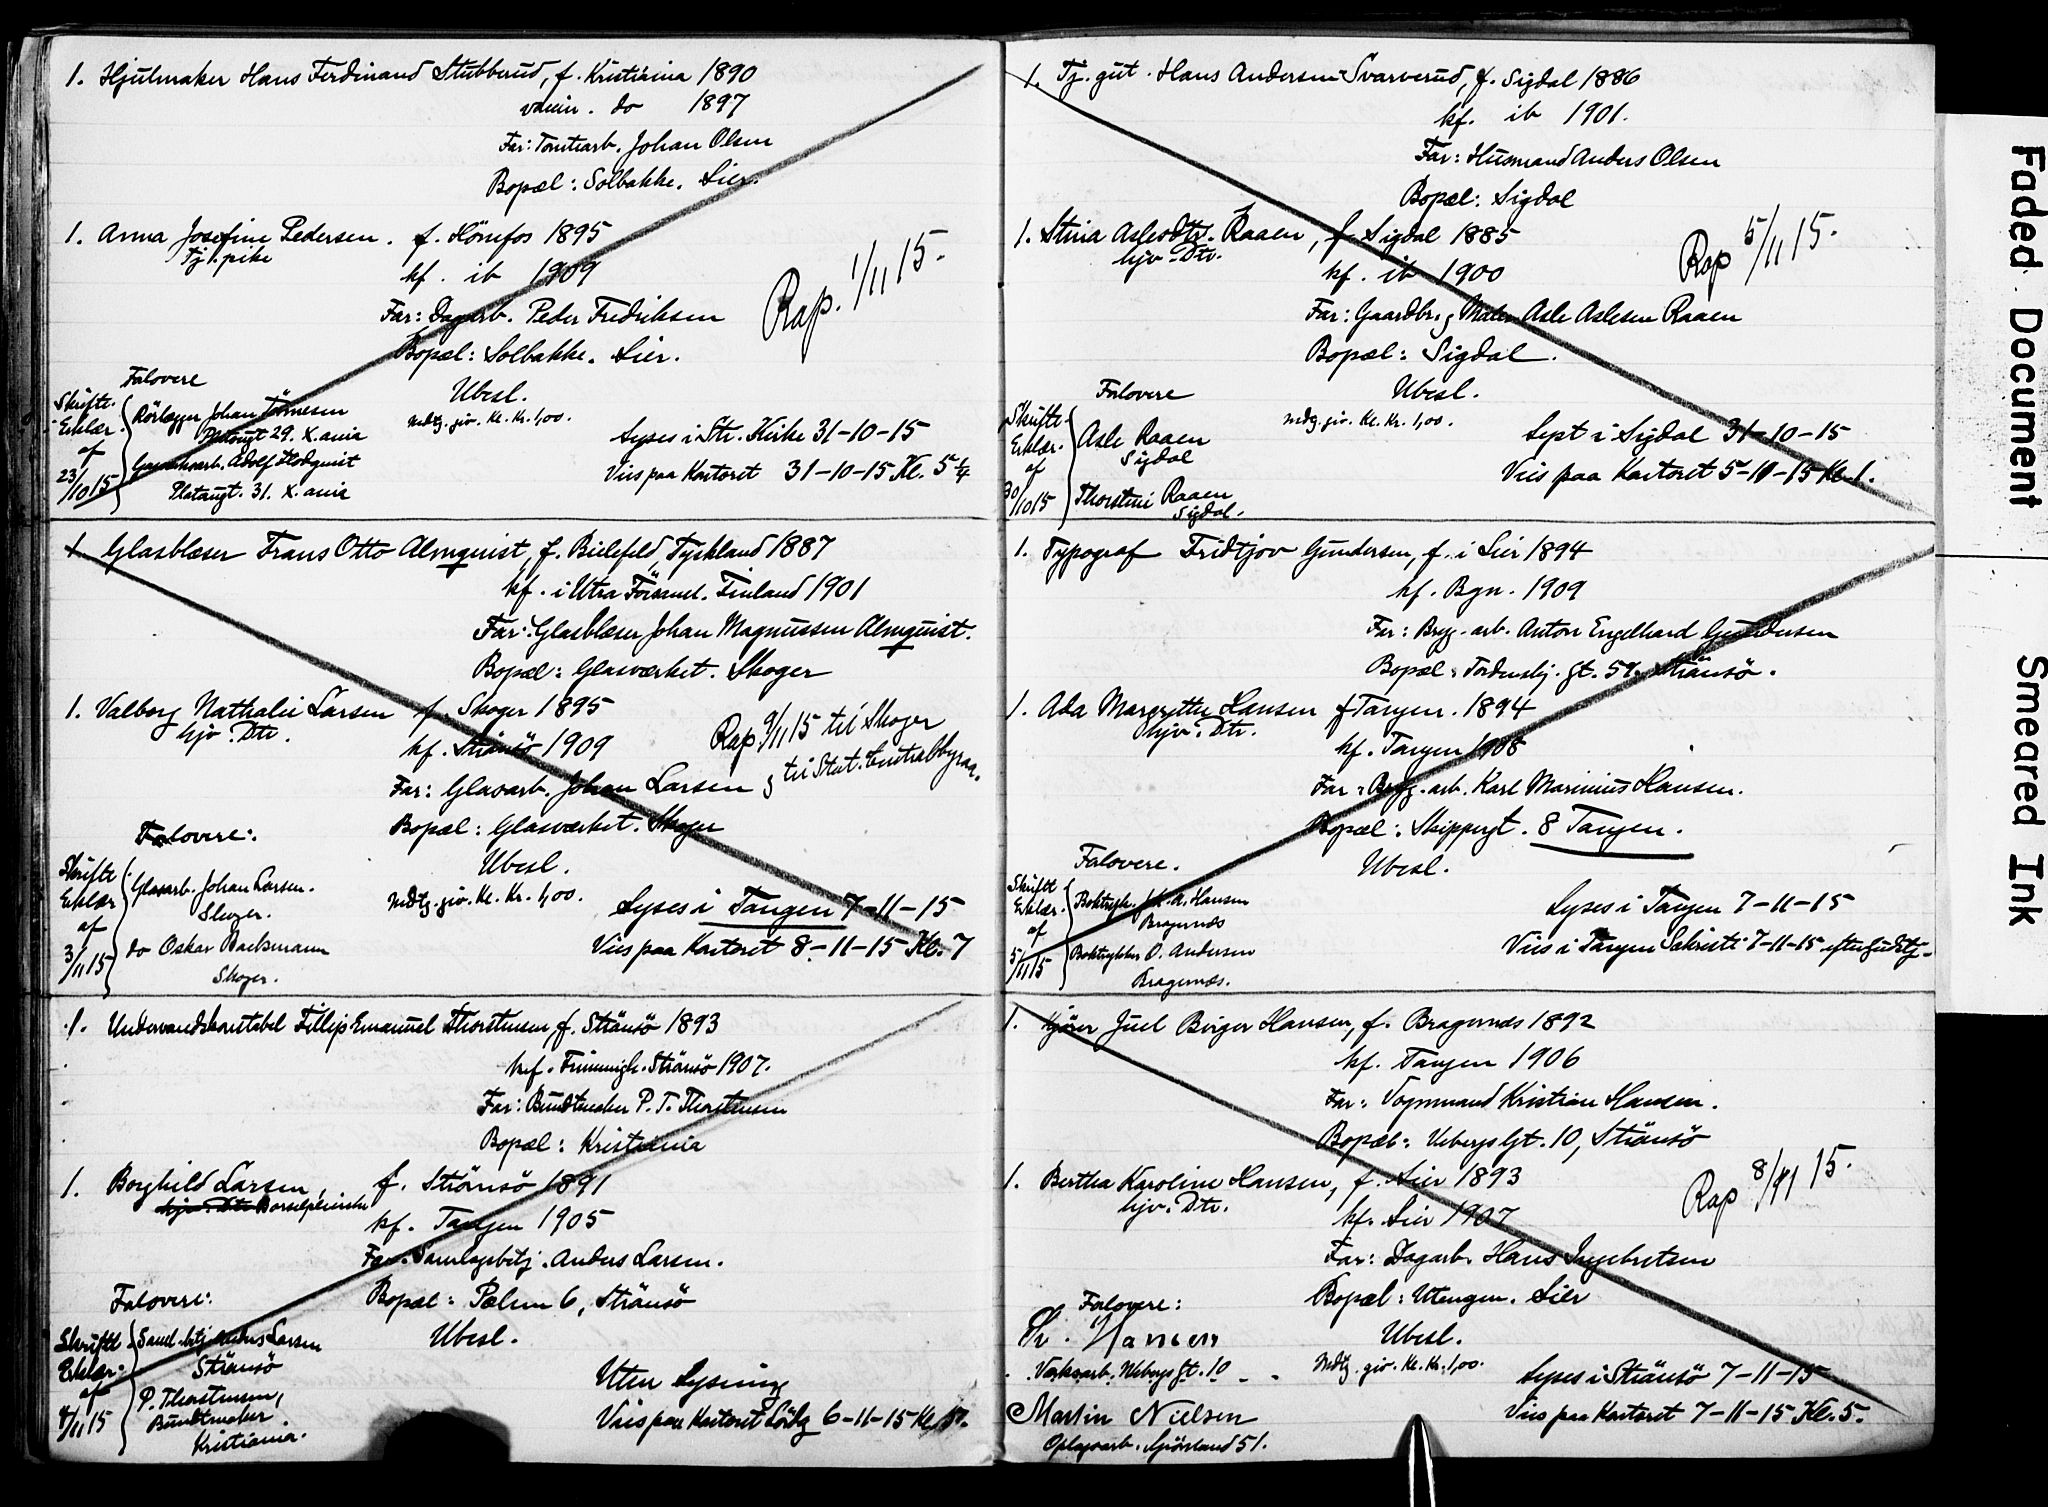 1. Hjulmaker Hans Ferdinand Stubberud, f. Kristiania 1890
vaccin. do 1897
Far: Tomtearb. Johan Olsen
Bopæl: Solbakke. Lier.
1. Anna Josefine Pedersen. f. Hönefos 1895
Tj. pike
kf. ib 1909
Far: Dagarb. Peder Fredriksen
Rap. 1/11 15.
Bopæl: Solbakke. Lier.
Forlovere
Ubesl.
Skriftl. Erklær. af 23/10 15
Rörlægger Johan
29. X. ania
Adolf Hodquist
31. X. ania
Mdtg. giv. Kl. Kr. 1,00.
Lyses i Str. Kirke 31-10-15
Viis paa Kontoret 31-10-15 Kl. 5 1/4
1. Glasblæser Frans Otto Almquist, f. Bielefeld, Tyskland 1887
kf. i Utra Finland 1901
Far: Glasblæser Johan Magnussen Almquist.
Bopæl: Glasværket. Skoger
1. Valborg Nathalie Larsen f. Skoger 1895
hjv. Dtr.
kf. Strömsö 1909
Rap 9/11 15 til Skoger
& til Stat. Centralbyraa.
Far: Glasarb. Johan Larsen
Bopæl: Glasværket. Skoger
Forlovere:
Ubesl.
Skriftl. Erklær af 3/11 15
Glasarb. Johan Larsen.
Skoger.
do Oskar Backmann
Skoger.
Mdtg. giv. Kl. Kr. 1,00.
Lyses i Tangen 7-11-15
Viis paa Kontoret 8-11-15 Kl. 7
1. Undervandskonstabel Fillip Emanuel Thorstensen, f. Strömsö 1893
kf. Frimenigh. Strömsö 1907.
Far: Bundtmaker P. T. Thorstensen
Bopæl: Kristiania
1. Borghild Larsen, f. Strömsö 1891
hjv. Dtr
kf. Tangen 1905
Far. Samlagsbetj. Anders Larsen.
Bopæl: Pælen 6, Strömsö
Forlovere:
Ubesl.
Skriftl. Erklær. af 4/11 15
Saml. betj. Anders Larsen
Strömsö
P. Thorstensen,
Bundtmaker.
Kristiania.
Uten Lysning
Viis paa Kontoret Lördg 6-11-15 Kl.
1. Tj. gut. Hans Andersen Svarverud, f. Sigdal 1886
kf. ib 1901.
Far: Husmand Anders Olsen
Bopæl: Sigdal
1. Stina Aslesdtr. Raaen, f. Sigdal 1885
hjv. Dtr.
kf. ib 1900
Rap 5/11 15.
Far: Gaardbr. & Maler Asle Aslesen Raaen
Bopæl: Sigdal.
Forlovere
Ubesl.
Skriftl. Erklær. af 30/10 15
Asle Raaen
Sigdal
Thorstein Raaen
Sigdal.
Mdtg. giv. Kl. Kr. 1,00.
Lyst i Sigdal 31-10-15
Viis paa Kontoret 5-11-15 Kl. 1.
1. Typograf Fridtjov Gundersen, f. i Lier 1894
kf. Bgn. 1909
Far: Bryg. arb. Anton Engelhard Gundersen
Bopæl: Tordenskj. gt. Strömsö.
1. Ada Margrethe Hansen f Tangen. 1894
hjv. Dtr.
kf. Tangen 1908
Far: Bryg. arb. Karl Marinius Hansen.
Bopæl: Skippergt. 8 Tangen.
Forlovere.
Ubesl.
Skriftl Erklær. af 5/11 15
Boktrykk. Hansen
Bragernæs
Boktrykker O. Andersen
Bragernæs.
Lyses i Tangen 7-11-15
Viis i Tangen Sakristi 7-11-15 efter Gudstj.
1. Kjörer Juel Birger Hansen, f. Bragernæs 1892
kf. Tangen 1906
Far: Vognmand Kristian Hansen.
Bopæl: Uebergs Gt. 10, Strömsö
1. Bertha Karoline Hansen, f. Lier 1893
hjv. Dtr.
Rap 8/11 15.
kf. Lier 1907
Far: Dagarb. Hans Ingebretsen
Bopæl: Utengen. Lier
Forlovere:
Kr. Hansen
Værksarb. Uebergs Gt. 10
Ubesl.
Mdtg. giv. Kl. Kr. 1,00.
Lyses i Strömsö 7-11-15
Martin Nielsen
Viis paa Kontoret 7-11-15 Kl. 5.
Oplagsarb. 51.
Faded Document
Smeared Ink